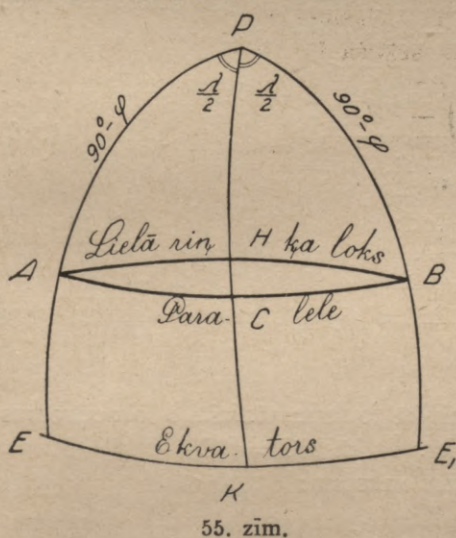 P
λ/2 λ/2
90°-φ 90°-φ
Lielā riņ H ķa loks
A B
Para- C lele
E Ekva- tors E₁
K
55. zīm.